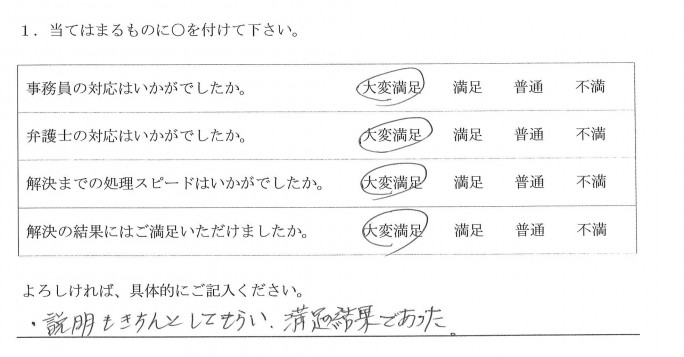 1．当てはまるものに○を付けて下さい。
事務員の対応はいかがでしたか。 大変満足 満足 普通 不満
弁護士の対応はいかがでしたか。 大変満足 満足 普通 不満
解決までの処理スピードはいかがでしたか。 大変満足 満足 普通 不満
解決の結果にはご満足いただけましたか。 大変満足 満足 普通 不満
よろしければ、具体的にご記入ください。
・説明もきちんとしてもらい、満足の結果であった。